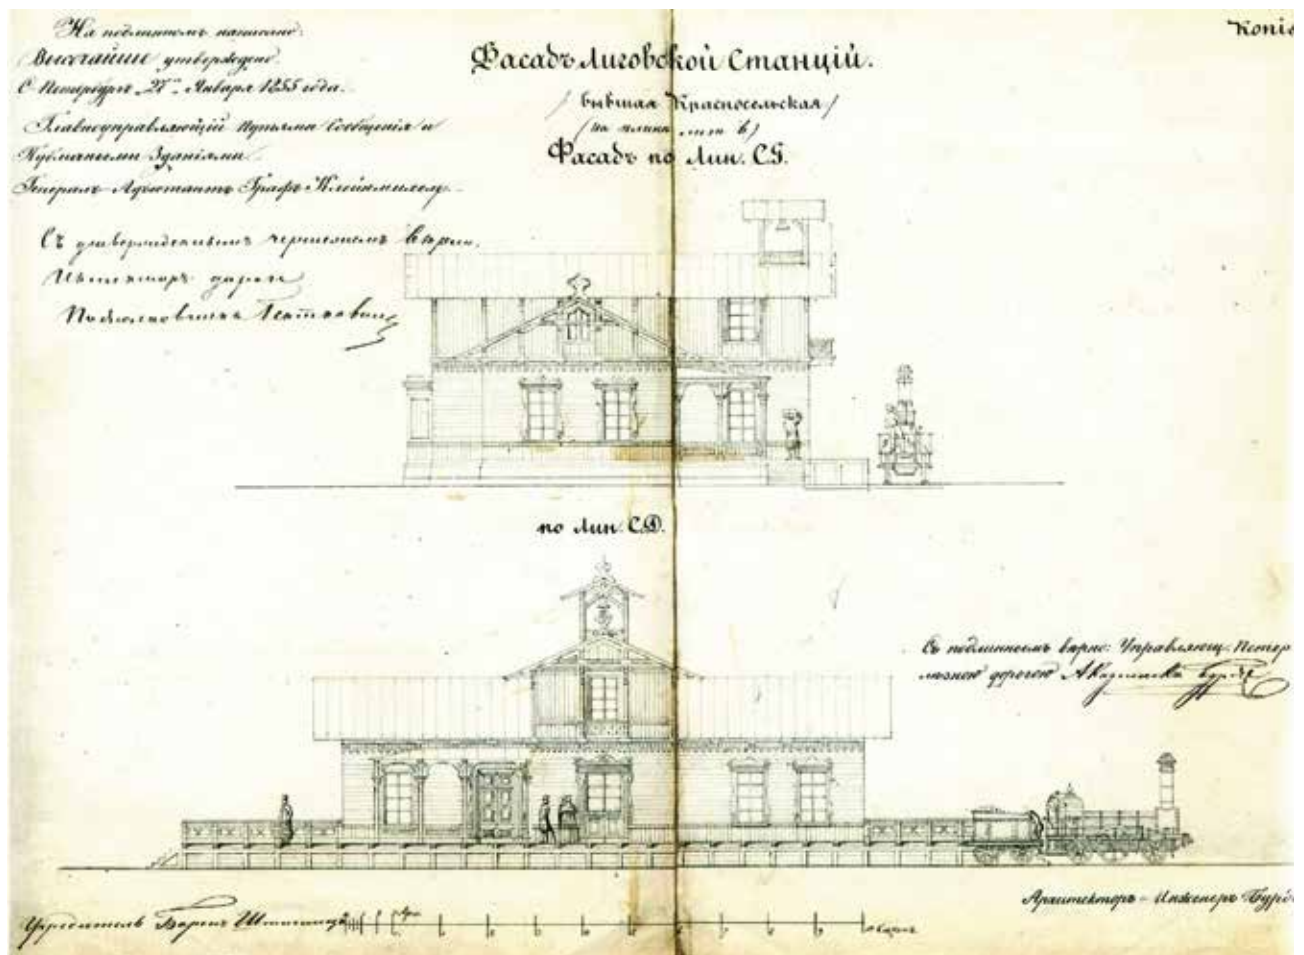 На подлинномъ написано:
Высочайше утверждено.
С. Петербургъ „27“ Января 1855 года.
Главноуправляющій Путями Сообщенія и
Публичными Зданіями
Генералъ-Адъютантъ Графъ Клейнмихель.
Съ утвержденнымъ чертежомъ вѣрно.
дороги
Подполковникъ
Копія
Фасадъ Лиговской Станцій.
/ бывшая Красносельская /
(на планѣ лит. В)
Фасадъ по Лин. СБ.
по Лин. СД.
Съ подлиннымъ вѣрно: Управляющ. Петер
дорогою
Архитекторъ-Инженеръ
Учредитель Баронъ Штиглицъ